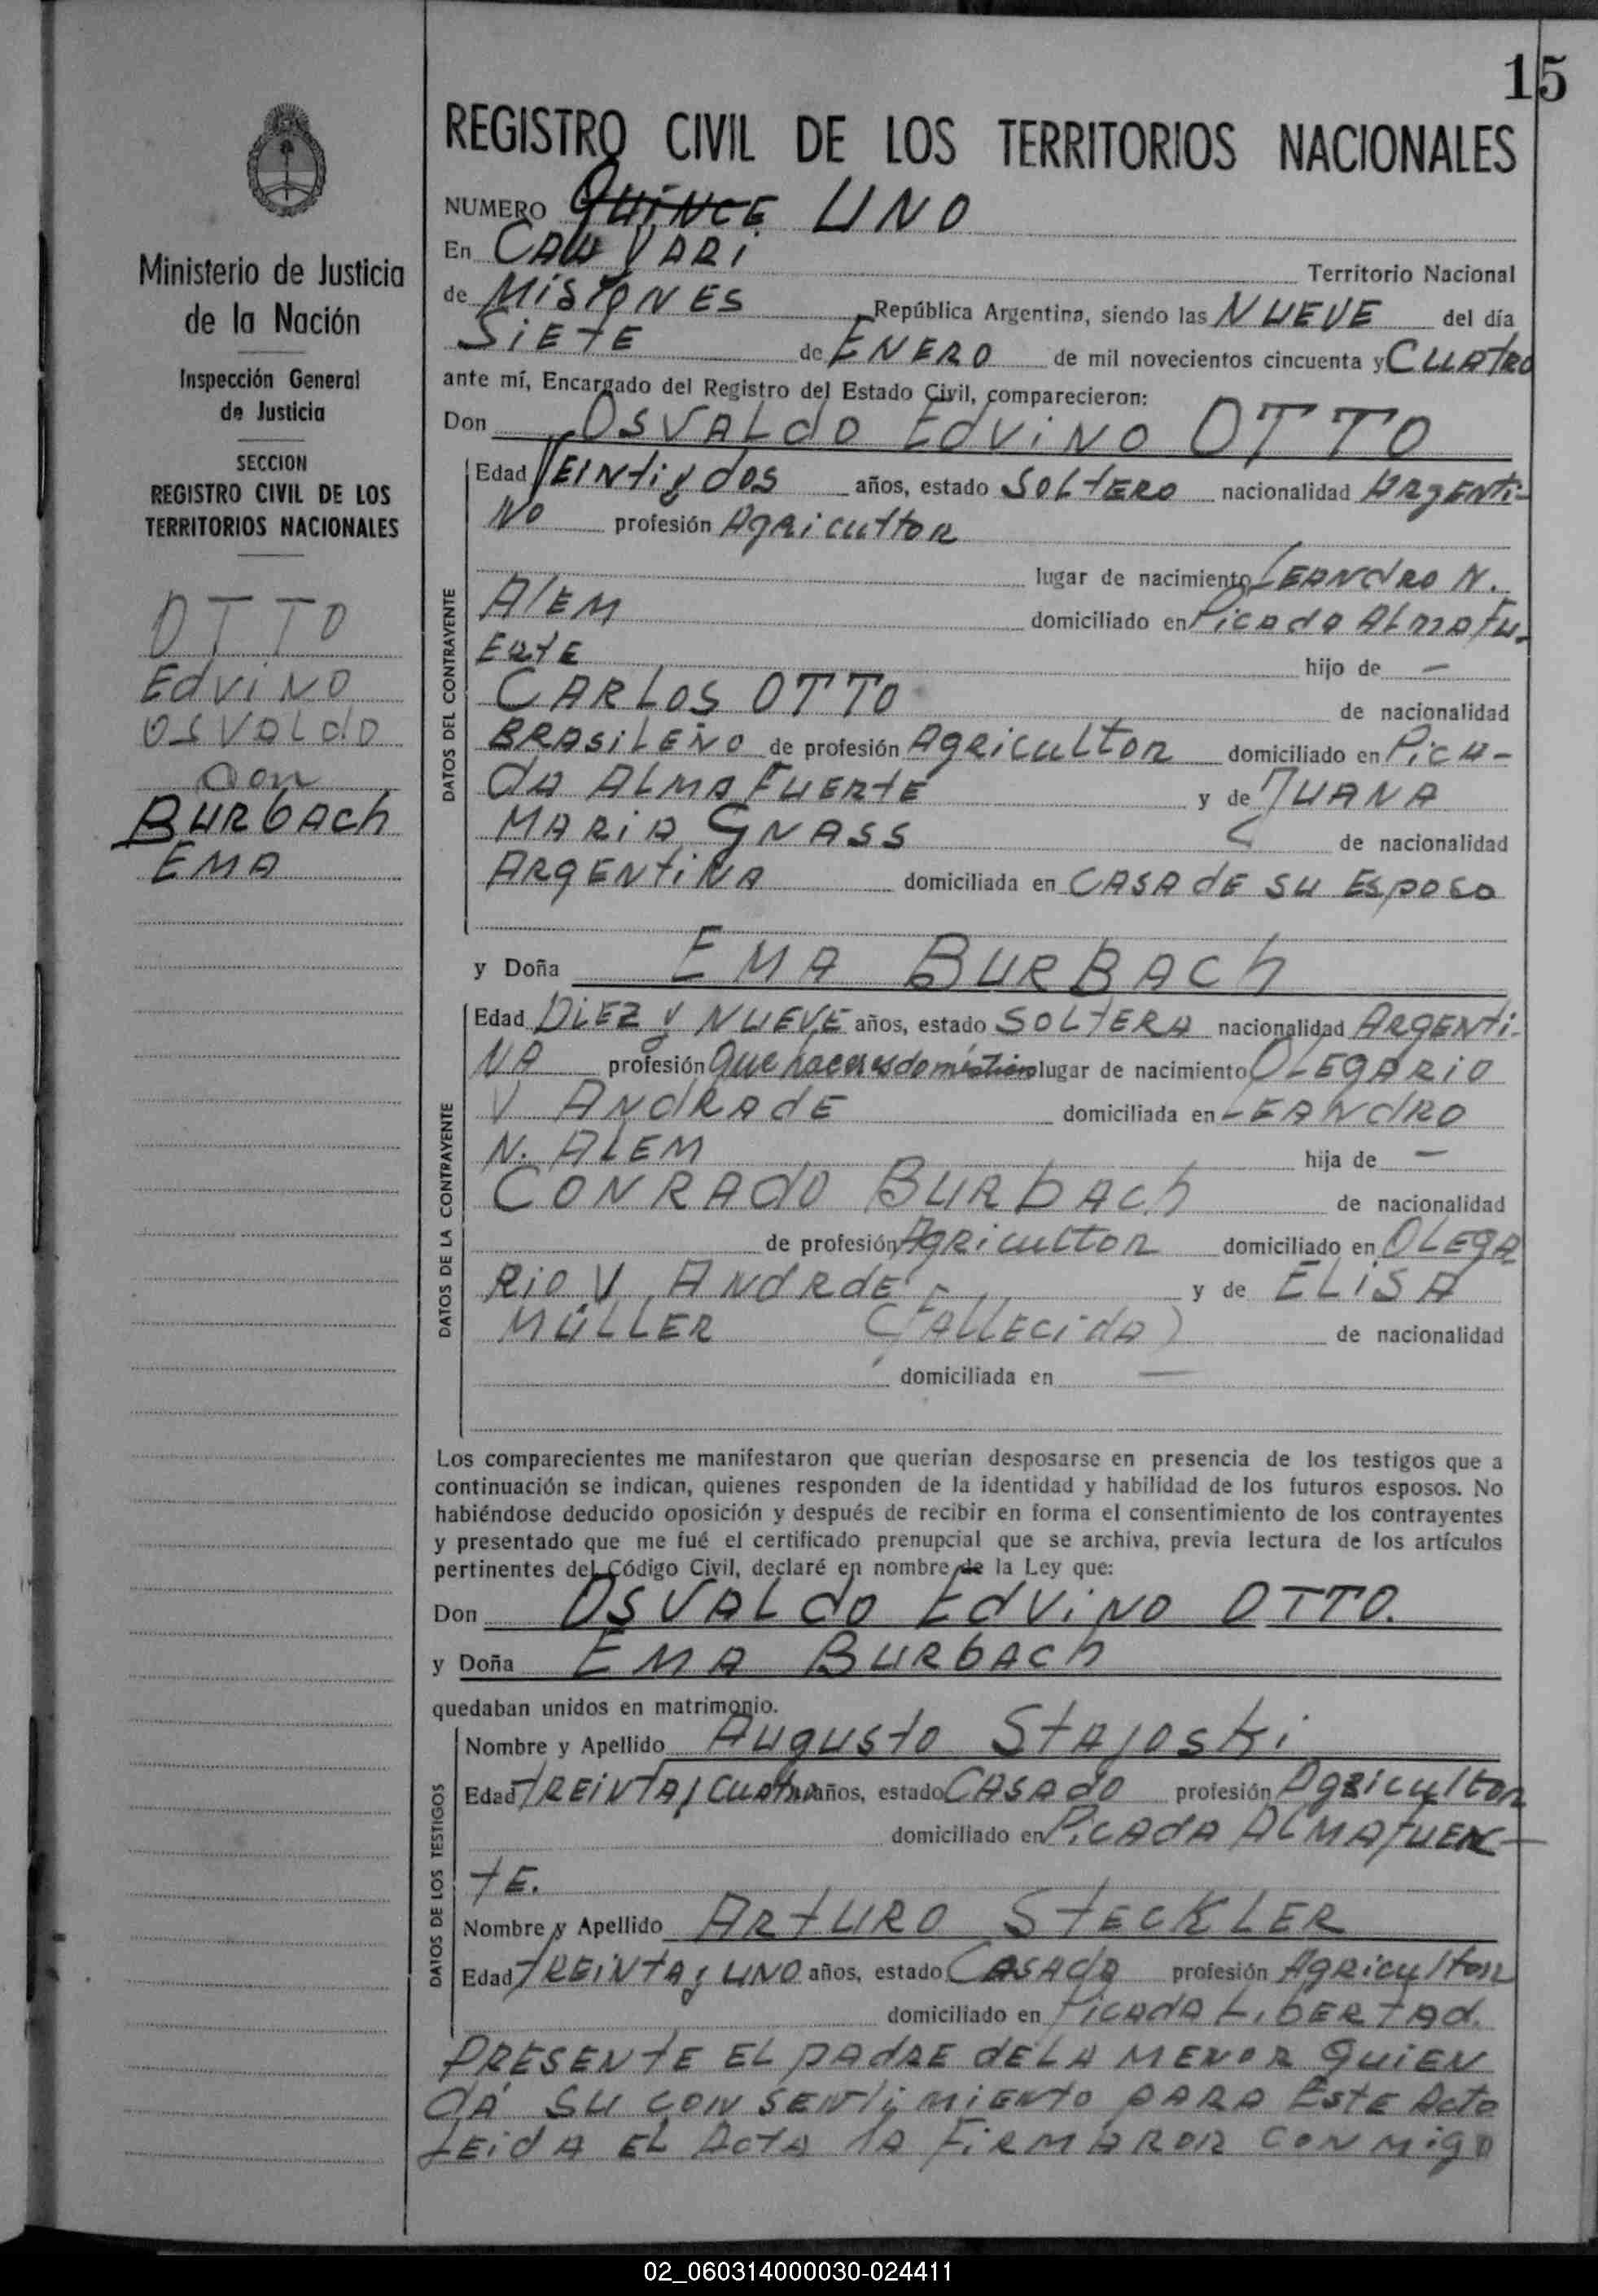 15
REGISTRO CIVIL DE LOS TERRITORIOS NACIONALES
NUMERO QUINCE UNO
En CAA YARI
Territorio Nacional
de MISIONES República Argentina, siendo las NUEVE del día
SIETE de ENERO de mil novecientos cincuenta y CUATRO
ante mí, Encargado del Registro del Estado Civil, comparecieron:
Don OSVALDO EDVINO OTTO
DATOS DEL CONTRAYENTE
Edad VEINTI y dOS años, estado SOLTERO nacionalidad ARGENTI-
NO profesión AgRicultor
lugar de nacimiento LEANDRO N.
ALEM domiciliado en Picada ALMAFU-
ERTE hijo de —
CARLOS OTTO de nacionalidad
BRASILEÑO de profesión AgRicultor domiciliado en PiCA-
dA ALMA FUERTE y de JUANA
MARIA GNASS de nacionalidad
ARGENTINA domiciliada en CASA dE SU ESPOSO
y Doña EMA BURBACh
DATOS DE LA CONTRAYENTE
Edad DIEZ y NUEVE años, estado SOLTERA nacionalidad ARGENTI-
NA profesión Que haceres domésticos lugar de nacimiento OLEGARIO
V ANDRADE domiciliada en LEANDRO
N. ALEM hija de —
CONRADO BURbACh de nacionalidad
de profesión AgRicultor domiciliado en OLEGA
RIO V ANdRdE y de ELISA
MÜLLER (FALLECIdA) de nacionalidad
domiciliada en —
Los comparecientes me manifestaron que querían desposarse en presencia de los testigos que a
continuación se indican, quienes responden de la identidad y habilidad de los futuros esposos. No
habiéndose deducido oposición y después de recibir en forma el consentimiento de los contrayentes
y presentado que me fué el certificado prenupcial que se archiva, previa lectura de los artículos
pertinentes del Código Civil, declaré en nombre de la Ley que:
Don OSVALdO EdViNO OTTO.
y Doña EMA BURbACh
quedaban unidos en matrimonio.
DATOS DE LOS TESTIGOS
Nombre y Apellido AUgUSTO STAJOSKi
Edad TREINTA y CUATRO años, estado CASADO profesión AgRicultor
domiciliado en PiCADA ALMAFUER-
TE.
Nombre y Apellido ARTURO STECKLER
Edad TREINTA y UNO años, estado CASADO profesión AgRicultor
domiciliado en PiCADA LIBERTAD.
PRESENTE EL PADRE DE LA MENOR QUIEN
DA SU CONSENTIMIENTO PARA ESTE Acto
LEIDA EL ACTA LA FIRMARON CONMIGO
Ministerio de Justicia
de la Nación
Inspección General
de Justicia
SECCION
REGISTRO CIVIL DE LOS
TERRITORIOS NACIONALES
OTTO
EdViNO
OSVALdO
con
BURbACh
EMA
02_060314000030-024411